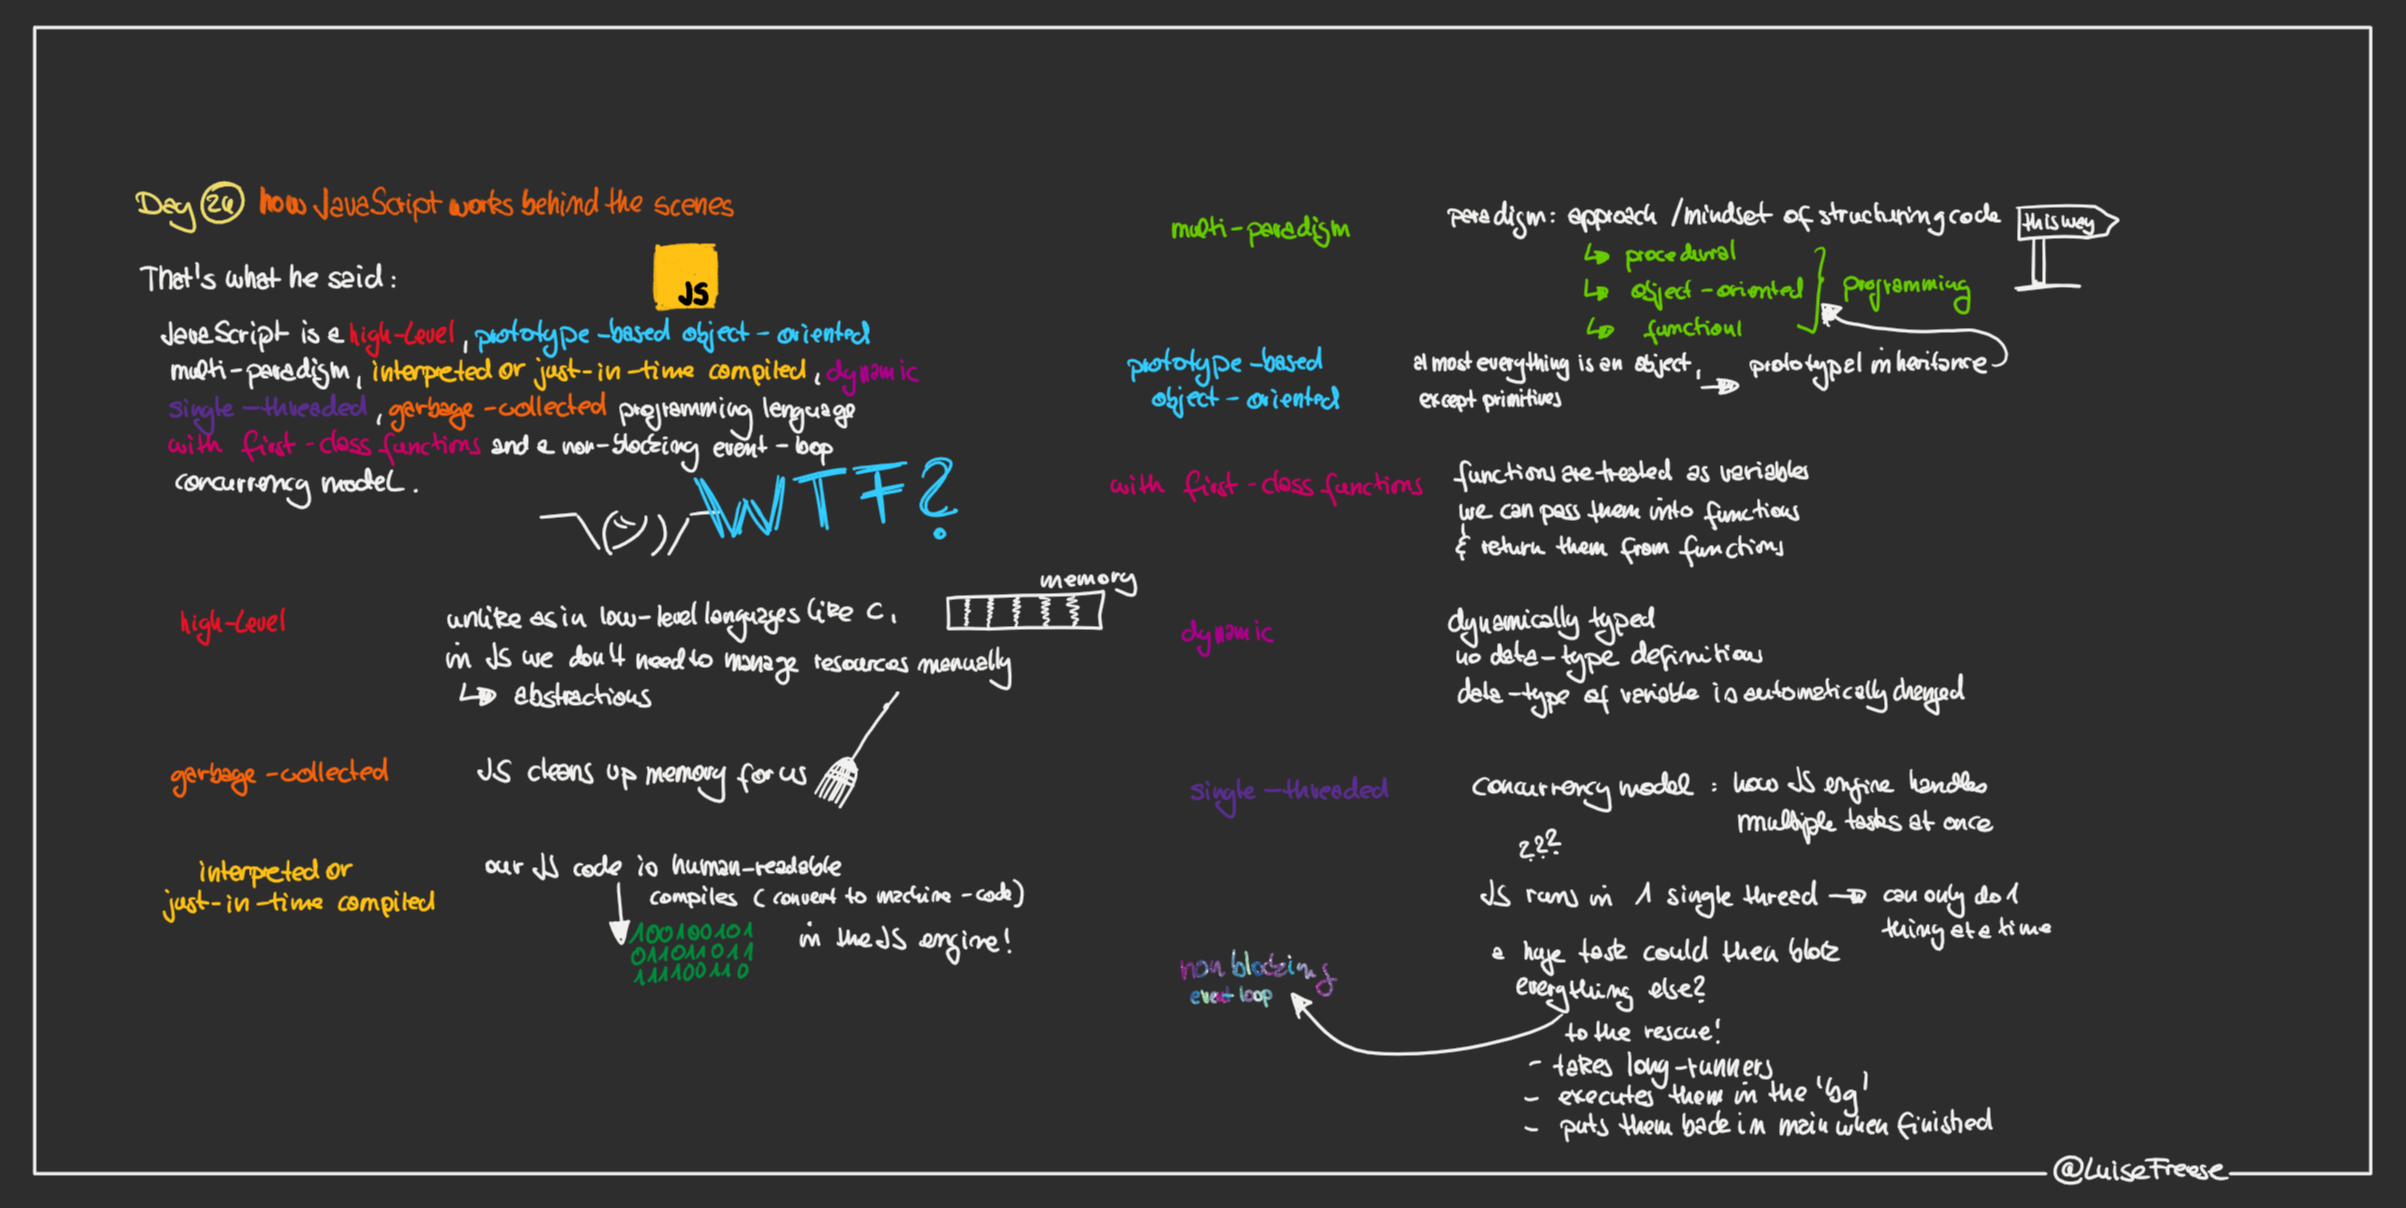 Day 24 how JavaScript works behind the scenes
That's what he said:
JS
JavaScript is a high-level, prototype-based object-oriented
multi-paradigm, interpreted or just-in-time compiled, dynamic
single-threaded, garbage-collected programming language
with first-class functions and a non-blocking event-loop
concurrency model.
WTF?
high-level
unlike as in low-level languages like C,
memory
in JS we don't need to manage resources manually
abstractions
garbage-collected
JS cleans up memory for us
interpreted or
just-in-time compiled
our JS code is human-readable
compiles (convert to machine-code)
100100101
011011011
11100110
in the JS engine!
multi-paradigm
paradigm: approach/mindset of structuring code
this way
procedural
object-oriented
functionl
programming
prototype-based
object-oriented
almost everything is an object,
except primitives
prototypel inheritance
with first-class functions
functions are treated as variables
we can pass them into functions
& return them from functions
dynamic
dynamically typed
no data-type definitions
data-type of variable is automatically changed
single-threaded
concurrency model: how JS engine handles
multiple tasks at once
???
JS runs in 1 single thread → can only do 1
thing at a time
a huge task could then block
everything else?
non blocking
event loop
to the rescue!
- takes long-runners
- executes them in the 'bg'
- puts them back in main when finished
@LuiseFreese